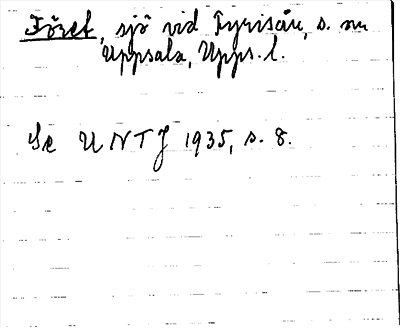 Föret, sjö vid Fyrisån, s. om
Uppsala, Upps. l.
Se UNTJ 1935, s. 8.